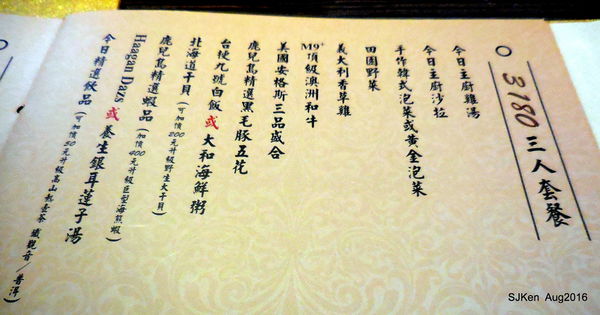 3780 三人套餐
今日主廚雞湯
今日主廚沙拉
手作韓式泡菜或黃金泡菜
田園野菜
義大利香草雞
M9+頂級澳洲和牛
美國安格斯三品盛合
鹿兒島精選黑毛豚五花
台梗九號白飯 或 大和海鮮粥
北海道干貝(可加價200元升級野生大干貝)
鹿兒島精選蝦品(可加價400元升級巨型海熊蝦)
Haagan Dazs 或 養生銀耳蓮子湯
今日精選飲品(可加價50元升級高山烏龍茶 鐵觀音/普洱)
SJKen Aug2016